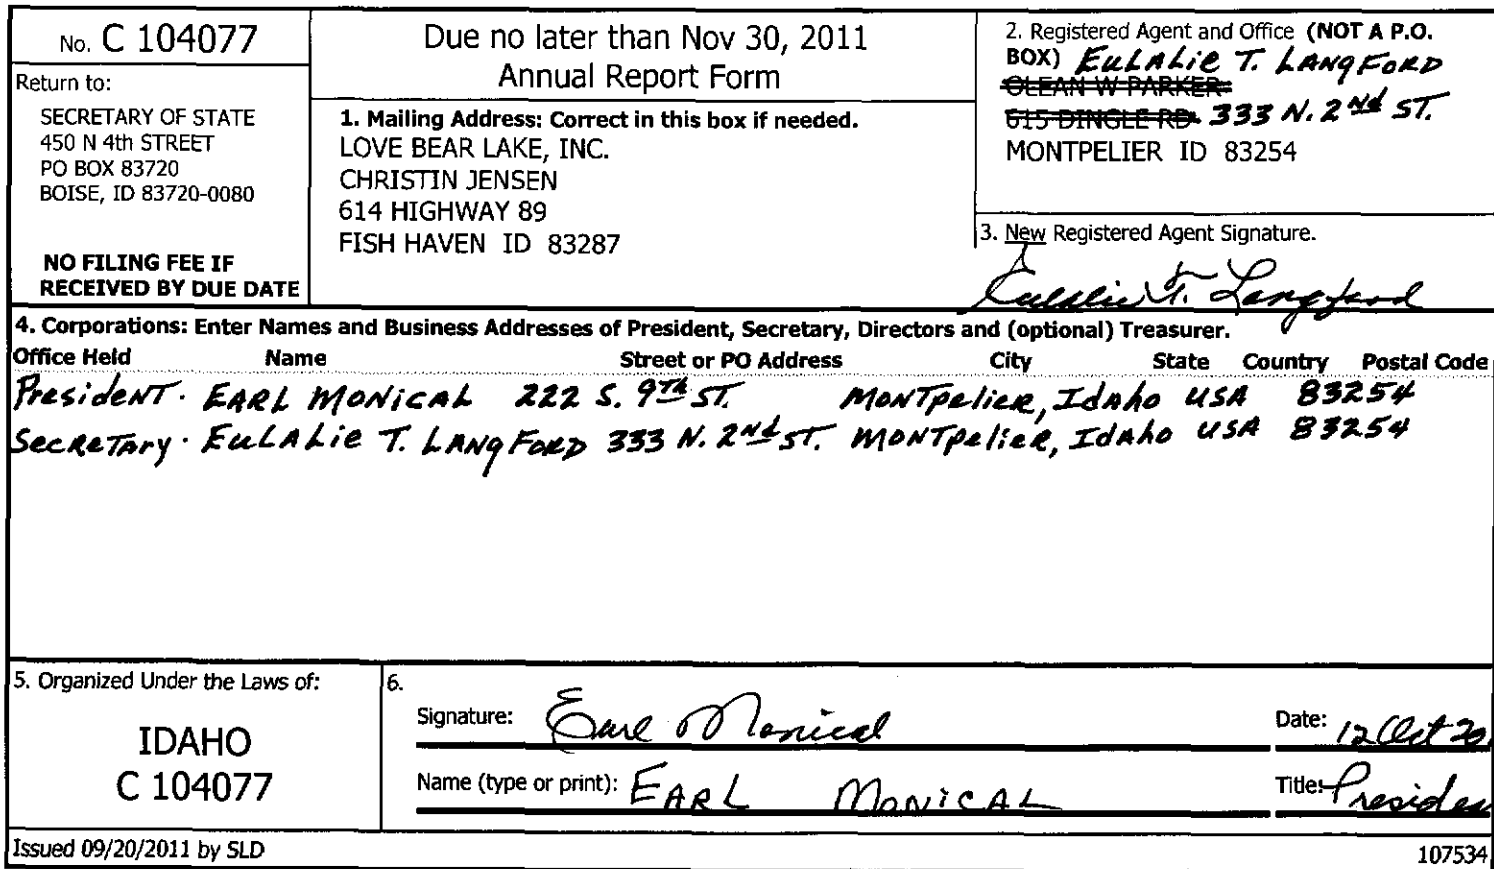 No. C 104077
Return to:
SECRETARY OF STATE
450 N 4th STREET
PO BOX 83720
BOISE, ID 83720-0080
NO FILING FEE IF
RECEIVED BY DUE DATE
Due no later than Nov 30, 2011
Annual Report Form
1. Mailing Address: Correct in this box if needed.
LOVE BEAR LAKE, INC.
CHRISTIN JENSEN
614 HIGHWAY 89
FISH HAVEN ID 83287
2. Registered Agent and Office (NOT A P.O.
BOX) EULALIE T. LANGFORD
OLEAN W PARKER
615 DINGLE RD 333 N. 2nd ST.
MONTPELIER ID 83254
3. New Registered Agent Signature.
Eulalie T. Langford
4. Corporations: Enter Names and Business Addresses of President, Secretary, Directors and (optional) Treasurer.
Office Held Name Street or PO Address City State Country Postal Code
President. EARL MONICAL 222 S. 9Th ST. MONTpelieR, IdAho USA 83254
SecReTAry. EuLALie T. LANgFoRD 333 N. 2Nd ST. MONTpelieR, IdAho USA 83254
5. Organized Under the Laws of:
IDAHO
C 104077
6.
Signature: Earl Monical
Date: 12 Oct 20
Name (type or print): EARL MONICAL
Title: Presiden
Issued 09/20/2011 by SLD
107534